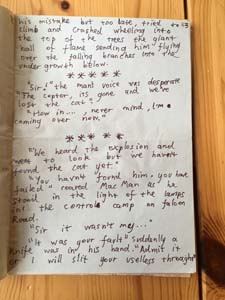 his mistake but too late, tried
climb and crashed wheeling into
the top of the trees the giant
ball of flame sending him flying
over the falling branches into the
undergrowth below.
* * * * *
"Sir!" the mans voice was desperate
"The copter, its gone and we've
lost the cat".
"How in.... never mind, I'm
coming over now."
* * * * *
"We heard the explosion and
went to look but we haven't
found the cat yet."
"You havnt found him. you have
failed" roared Mac Man as he
stood in the light of the lamps
in the controll camp on falcon
Road.
"Sir it wasn't me,..."
"It was your fault" suddenly a
knife was in his hand. "Admit it
or I will slit your useless throught"